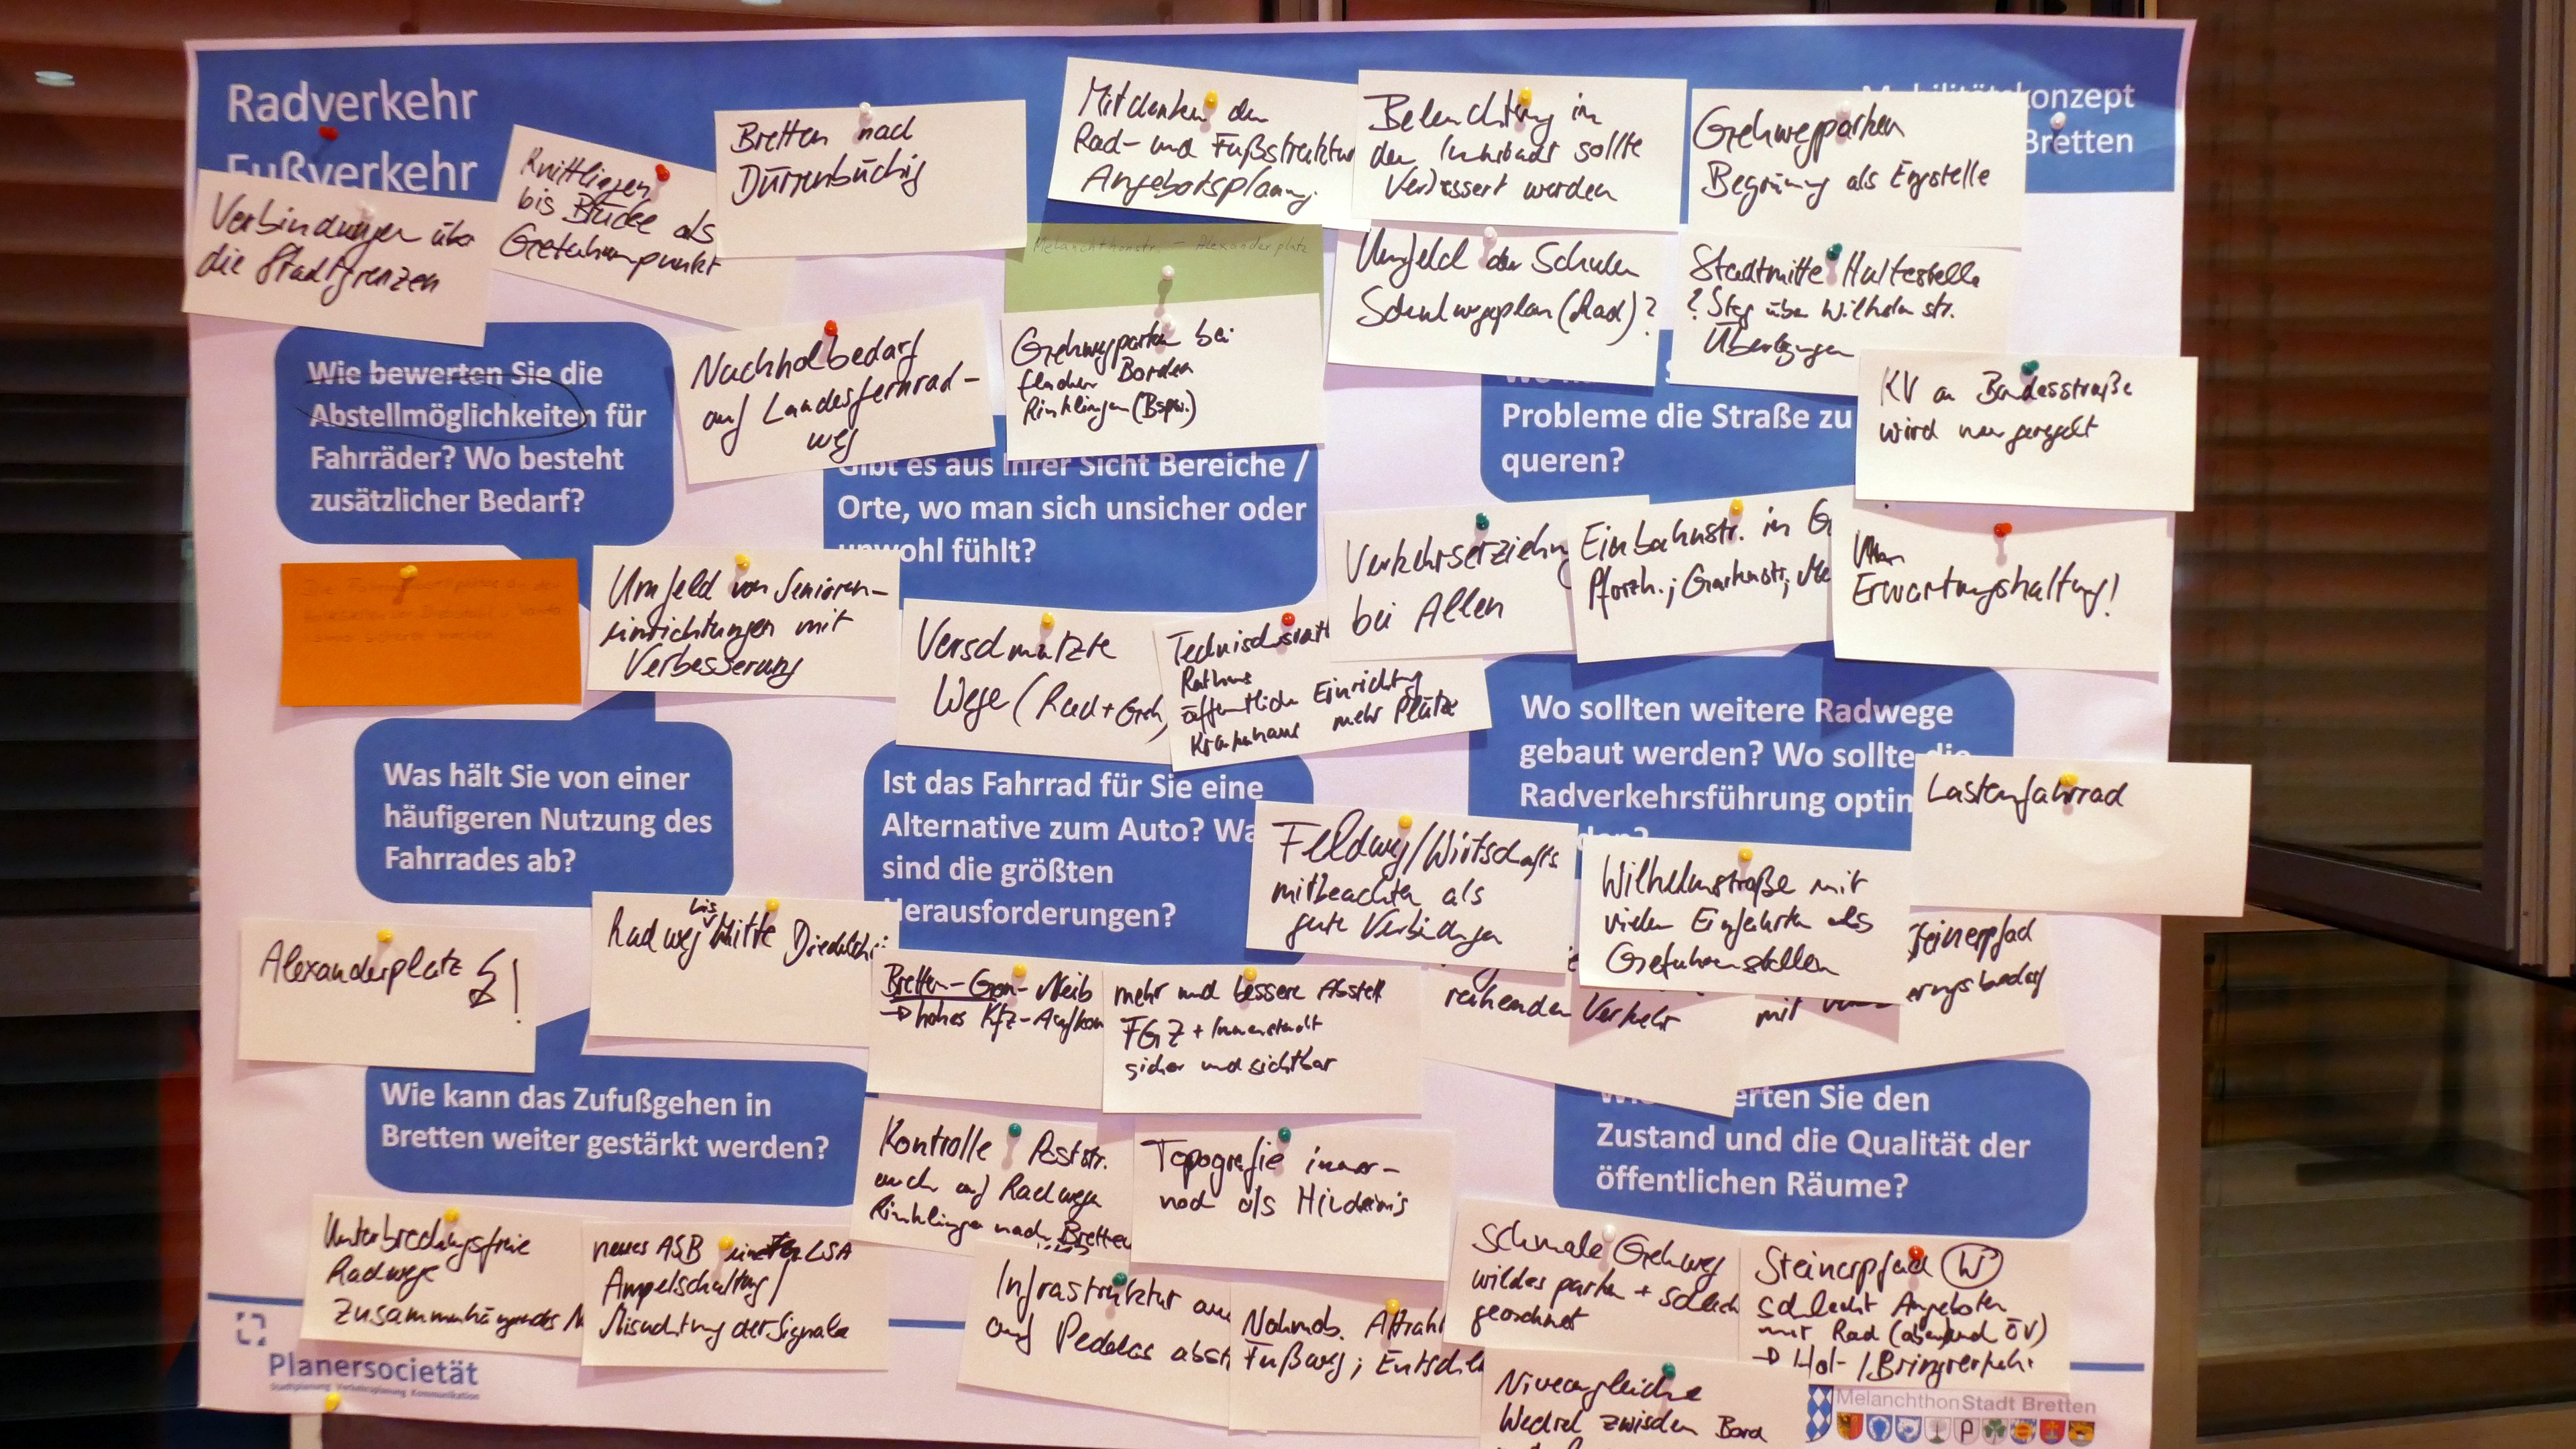 Radverkehr
Fußverkehr
konzept
Bretten
Verbindungen über
die Stadtgrenzen
Knittlingen
bis Brücke als
Gefahrenpunkt
Bretten nach
Dürrenbüchig
Mitdenken der
Rad- und Fußstruktur
Angebotsplanung
Beleuchtung in
der Innenstadt sollte
Verbessert werden
Gehwegparken
Begrünung als Engstelle
Melanchthonstr. - Alexanderplatz
Umfeld der Schulen
Schulwegeplan (Rad)?
Stadtmitte Haltestelle
? Steg über Wilhelmstr.
Überlegungen
Nachholbedarf
auf Landesfernrad-
weg
Gehwegparken bei
flachen Borden
Rinklingen (Bspw.)
KV an Bundesstraße
wird neu geregelt
Wie bewerten Sie die
Abstellmöglichkeiten für
Fahrräder? Wo besteht
zusätzlicher Bedarf?
Gibt es aus Ihrer Sicht Bereiche /
Orte, wo man sich unsicher oder
unwohl fühlt?
Probleme die Straße zu
queren?
Umfeld von Senioren-
einrichtungen mit
Verbesserung
Verschmutzte
Wege (Rad + Geh
Rathaus
öffentliche Einrichtung
Krankenhaus mehr Plätze
Verkehrserziehung
bei Allen
Einbahnstr. in G
Pforzh.; Gartenstr.; Me
Erwartungshaltung!
Was hält Sie von einer
häufigeren Nutzung des
Fahrrades ab?
Ist das Fahrrad für Sie eine
Alternative zum Auto? Wa
sind die größten
Herausforderungen?
Wo sollten weitere Radwege
gebaut werden? Wo sollte die
Radverkehrsführung optim
Lastenfahrrad
Feldweg/Wirtschafts
mitbeachten als
gute Verbindungen
Wilhelmstraße mit
vielen Einfahrten als
Gefahrenstellen
Alexanderplatz !
Radweg bis Mitte Diedelsh
Bretten-Gon-Neib
→ hohes Kfz-Aufkom
mehr und bessere Abstell
FGZ + Innenstadt
sicher und sichtbar
ruhenden Verkehr
mit
teinerpfad
erungsbedarf
Wie kann das Zufußgehen in
Bretten weiter gestärkt werden?
erten Sie den
Zustand und die Qualität der
öffentlichen Räume?
Kontrolle Poststr.
auch auf Radwegen
Rinklingen nach Bretten
Topografie immer-
noch als Hindernis
Unterbrechungsfreie
Radwege
Zusammenhängendes N
neues ASB LSA
Ampelschaltung/
Missachtung der Signale
Infrastruktur au
auf Pedelecs abst
Nahmob. Attrakt
Fußweg; Entschl
Schmale Gehweg
wildes parken + schlech
geordnet
Steinerpfad W
schlecht Angeboten
mit Rad (abend ÖV)
→ Hol-/Bringverkehr
Niveaugleiche
Wechsel zwischen Bord
Planersocietät
Stadtplanung Verkehrsplanung Kommunikation
Melanchthon Stadt Bretten